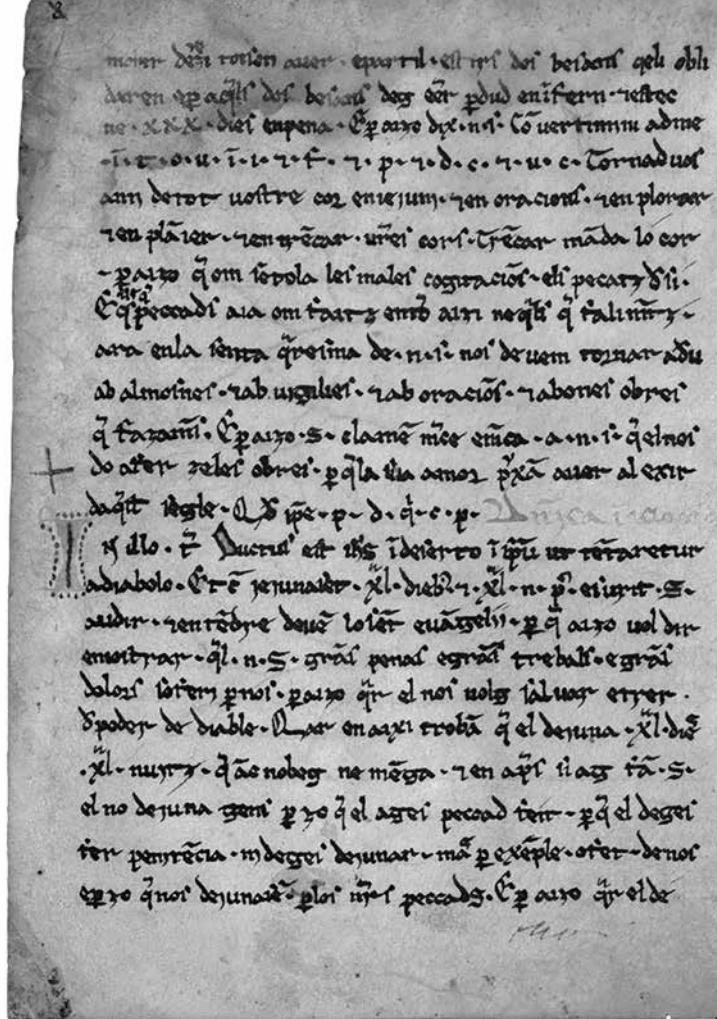 mour dẽzi totsen auer · epartil · est ṽs dos besans qeli obli
daren eꝑ aq̃ls dos besans deg eẽr ꝑdud enĩfern · ⁊estec
ne · XXX · dies enpena · Eꝑ aizo dix · n · s · Cõuertimini adme
· ĩ · t · o · u · ĩ · i · ⁊ · f · ⁊ · p · ⁊ · d · c · ⁊ · u · c · Tornaduos
am de tot uostre cor en ieiuni · ⁊en oracions · ⁊en plorar
⁊en plãier · ⁊en trẽcar · ur̃es cors · Trẽcar mãda lo cor
· ꝑ aizo q̃ om se tola les males cogitaciõs · els pecatz dsi ·
peccads aia om faitz enib aizi neq̃ls q̃ fali
ara en la senta q̃resma de · n · s · nos deuem tornar adu
ab almosnes · ⁊ab uigilies · ⁊ab oraciõs · ⁊abones obres
q̃ fazam̃s · Eꝑ aizo · S · clamẽ mc̃e · a · n · s · q̃el nos
do afer zeles obres · ꝑq̃ la sua amor auer al exir
daq̃st segle · Qd ip̃e · p · d · q̃ · c · p ·
In illo · t̃ Ductus est ihs ĩ deserto ĩ ut tẽtaretur
adiabolo · Et c̃ ieiunasẽt · xl · dieb; ⁊ · xl · n · p̃ · esurit · S ·
audir · ⁊entẽdre deuẽ lo sẽt euãgeli · ꝑ q̃ aizo uol dir
emostrar · q̃l · n · S · grãs penas egrãs trebals · egrãs
dolors soferi ꝑ nos · ꝑ aizo q̃r el nos uolg saluar etrer ·
d poder de diable · Qar en aizi trobã q̃ el dejuna · xl · diẽ
· xl · nuitz · q̃ ãc nobeg ne mẽga · ⁊en ap̃s si ag fã · S ·
el no dejuna gens ꝑ zo q̃ el ages peccad feit · ꝑ q̃ el deges
fer penitẽcia · ni deges dejunar · mas ꝑ exẽple · ofet · denos
eꝑ zo q̃ nos dejunasẽ · ꝑlos nr̃es peccads · Eꝑ aizo q̃r el de